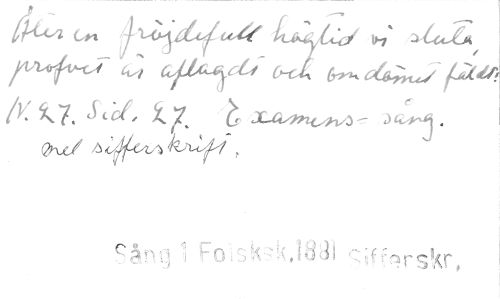 Åter en fröjdefull högtid vi sluta,
profvet är aflagdt och omdömet fäldt.
N. 27. Sid. 27. Examens-sång.
mel sifferskrift.
Sång 1 Folsksk, 1881 Sifferskr,